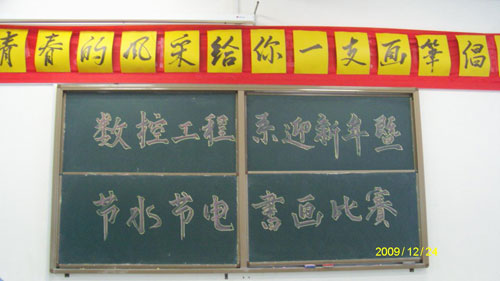 青春的风采给你一支画筆倡
数控工程系迎新年暨
节水节电書画比赛
2009/12/24